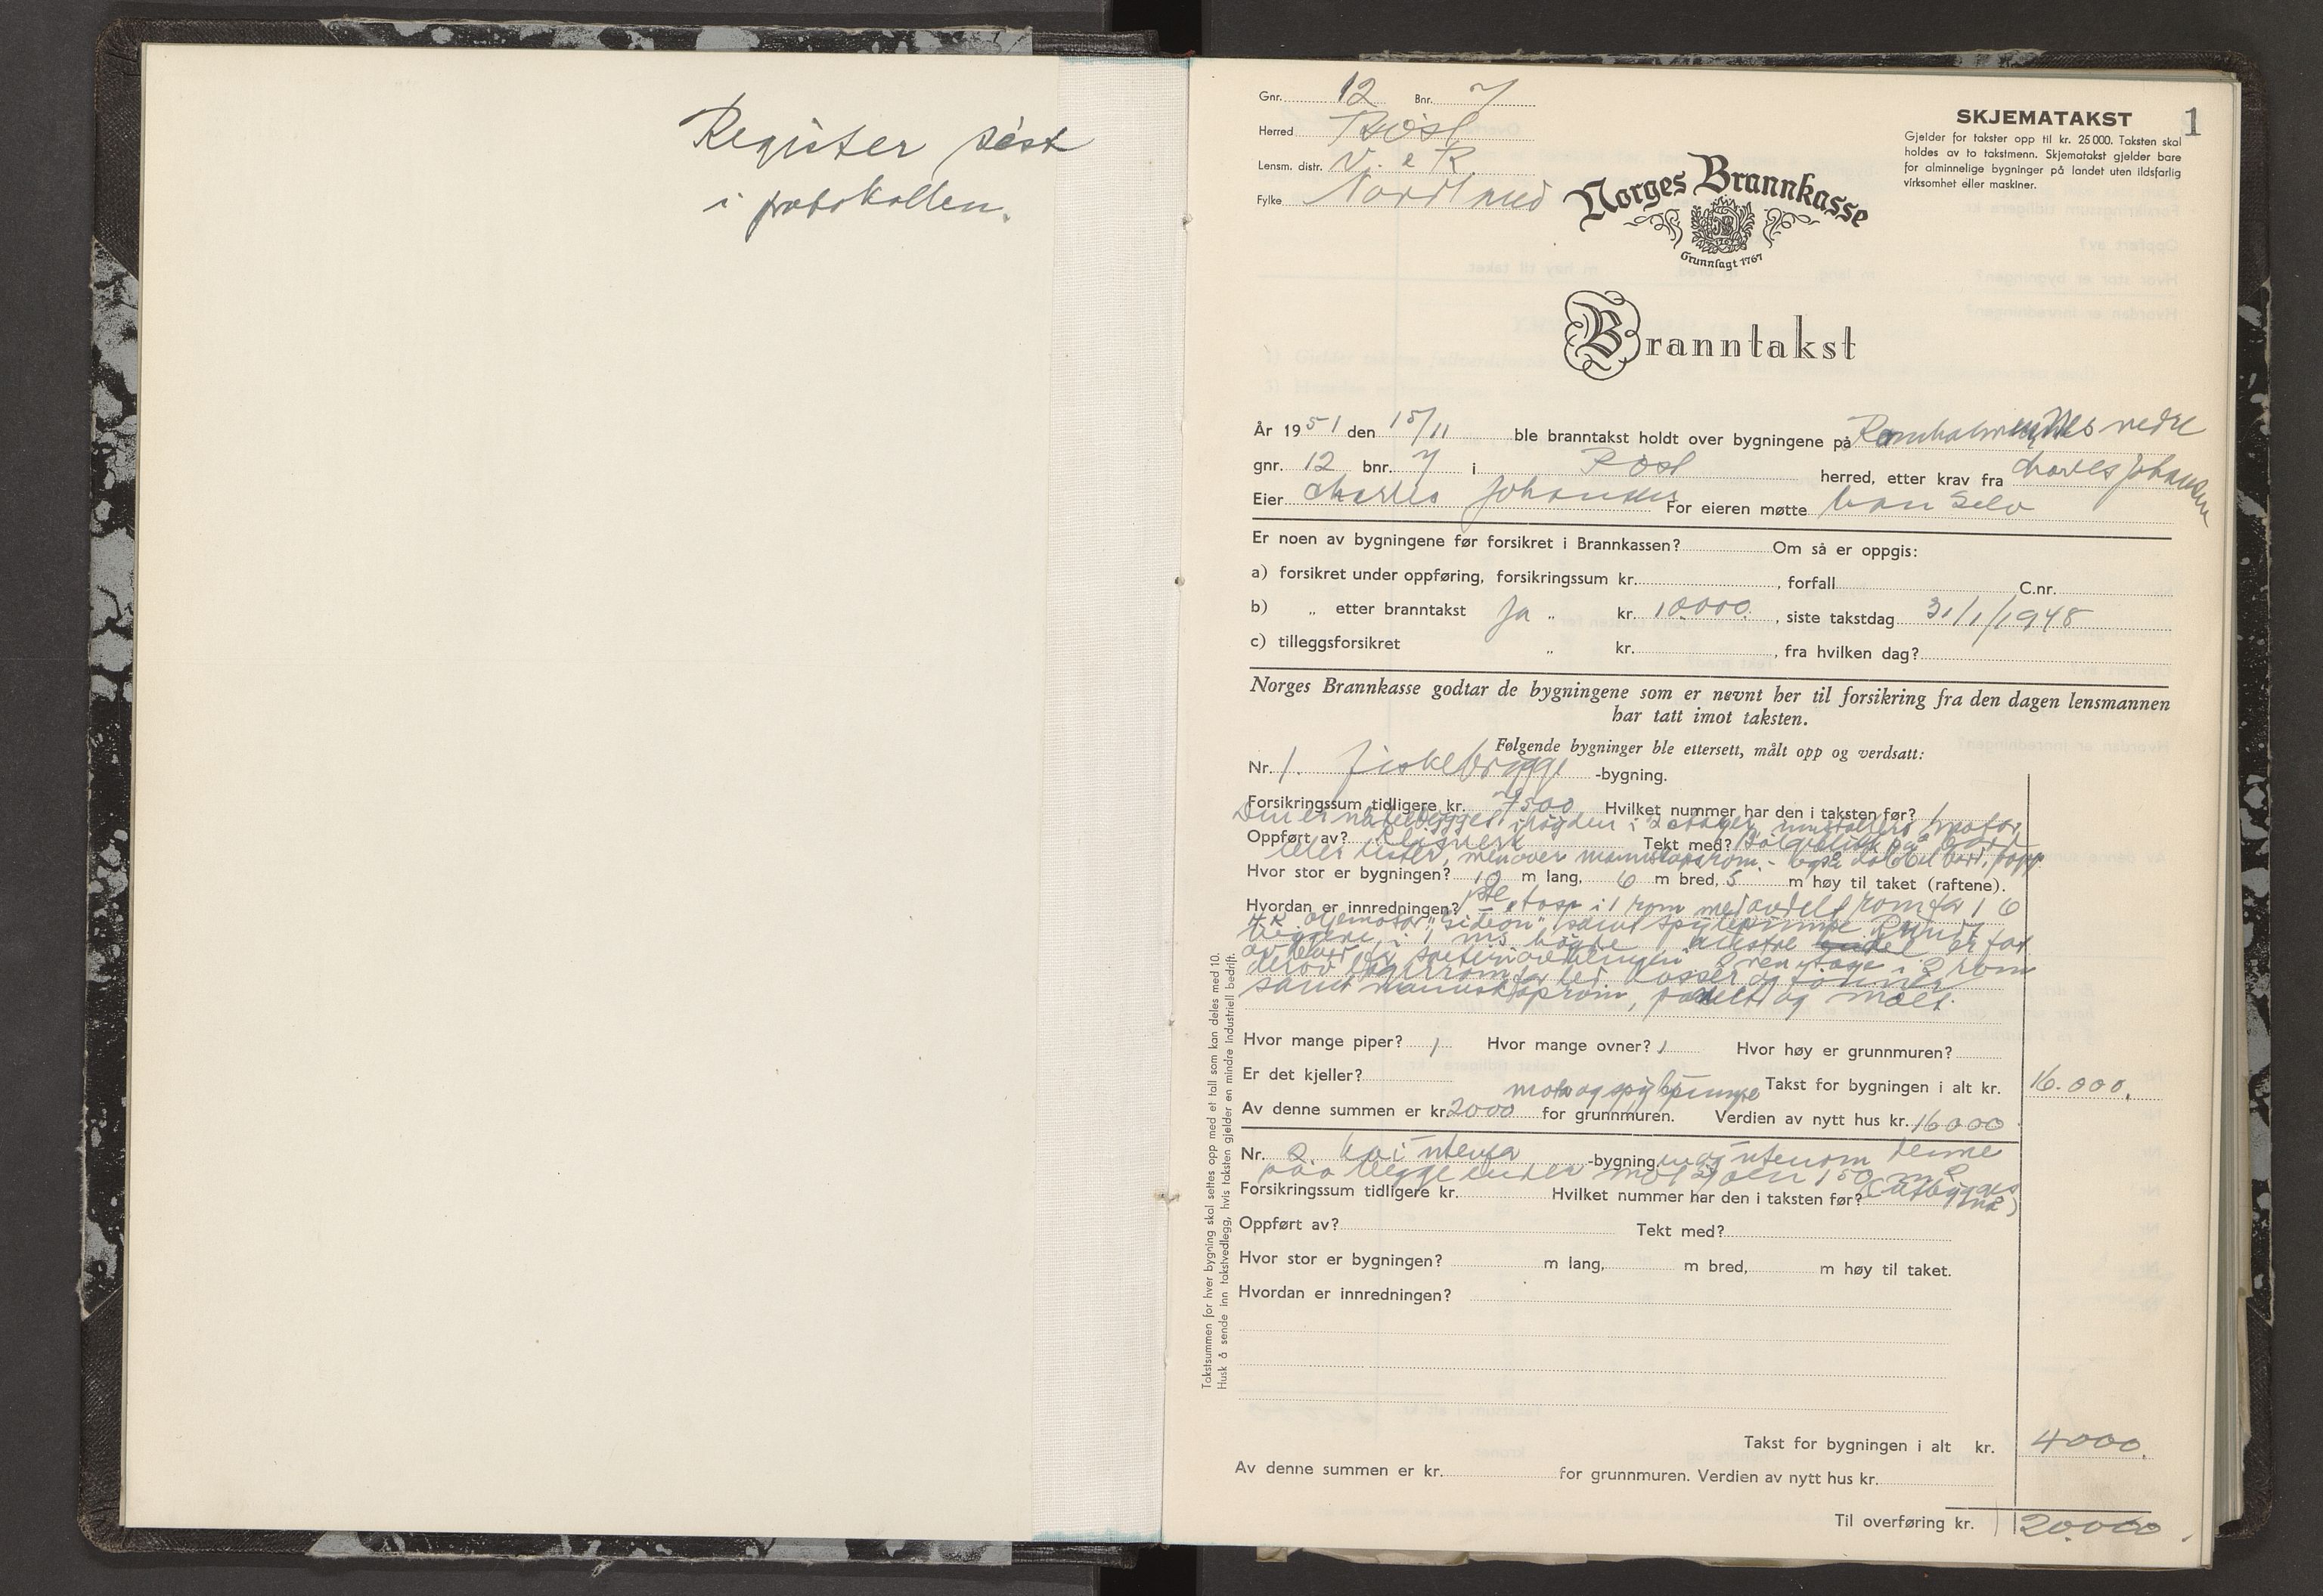 Register sist
i protokollen.
Gnr. 12 Bnr. 7
Herred Røst
Lensm. distr. V. & R
Fylke Nordland
SKJEMATAKST 1
Gjelder for takster opp til kr. 25 000. Taksten skal
holdes av to takstmenn. Skjematakst gjelder bare
for alminnelige bygninger på landet uten ildsfarlig
virksomhet eller maskiner.
Norges Brannkasse
Grunnlagt 1767
Branntakst
År 1951 den 15/11 ble branntakst holdt over bygningene på nedre
gnr. 12 bnr. 7 i Røst herred, etter krav fra Charles Johansen
Eier Charles Johansen For eieren møtte han selv
Er noen av bygningene før forsikret i Brannkassen? Om så er oppgis:
a) forsikret under oppføring, forsikringssum kr. , forfall C.nr.
b) „ etter branntakst Ja „ kr. 10000. , siste takstdag 31/1/1948
c) tilleggsforsikret „ kr. , fra hvilken dag?
Norges Brannkasse godtar de bygningene som er nevnt her til forsikring fra den dagen lensmannen
har tatt imot taksten.
Følgende bygninger ble ettersett, målt opp og verdsatt:
Nr. 1. fiskebrygge -bygning.
Forsikringssum tidligere kr. 7500 Hvilket nummer har den i taksten før? 1
Den er i høyden i 2 etager
Oppført av? Tekt med?
over mannskapsrom - også papp
Hvor stor er bygningen? 12 m lang, 6 m bred, 5 m høy til taket (raftene).
Hvordan er innredningen? 1ste etasje i 1 rom med avdelt rom for 1 6
HK oljemotor "Gideon" samt spylepumpe
i 1 ms høyde
av bord 2den etage i 2 rom
derav lagerrom for
samt mannskaprom, panelt og malt.
Hvor mange piper? 1 Hvor mange ovner? 1 Hvor høy er grunnmuren?
Er det kjeller? Takst for bygningen i alt kr. 16.000.
motor og spylepumpe
Av denne summen er kr. 2000 for grunnmuren. Verdien av nytt hus kr. 16000
Nr. 2. kai -bygning og utenom denne
Forsikringssum tidligere kr. Hvilket nummer har den i taksten før?
Oppført av? Tekt med?
Hvor stor er bygningen? m lang, m bred, m høy til taket.
Hvordan er innredningen?
Takst for bygningen i alt kr. 4000.
Av denne summen er kr. for grunnmuren. Verdien av nytt hus kr.
Til overføring kr. 20.000.
Takstsummen for hver bygning skal settes opp med et tall som kan deles med 10.
Husk å sende inn takstvedlegg, hvis taksten gjelder en mindre industriell bedrift.